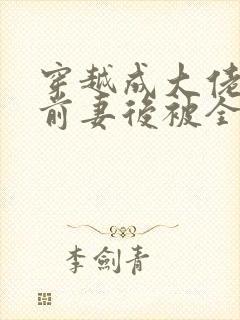 穿越成大佬
前妻後被全
李劍青